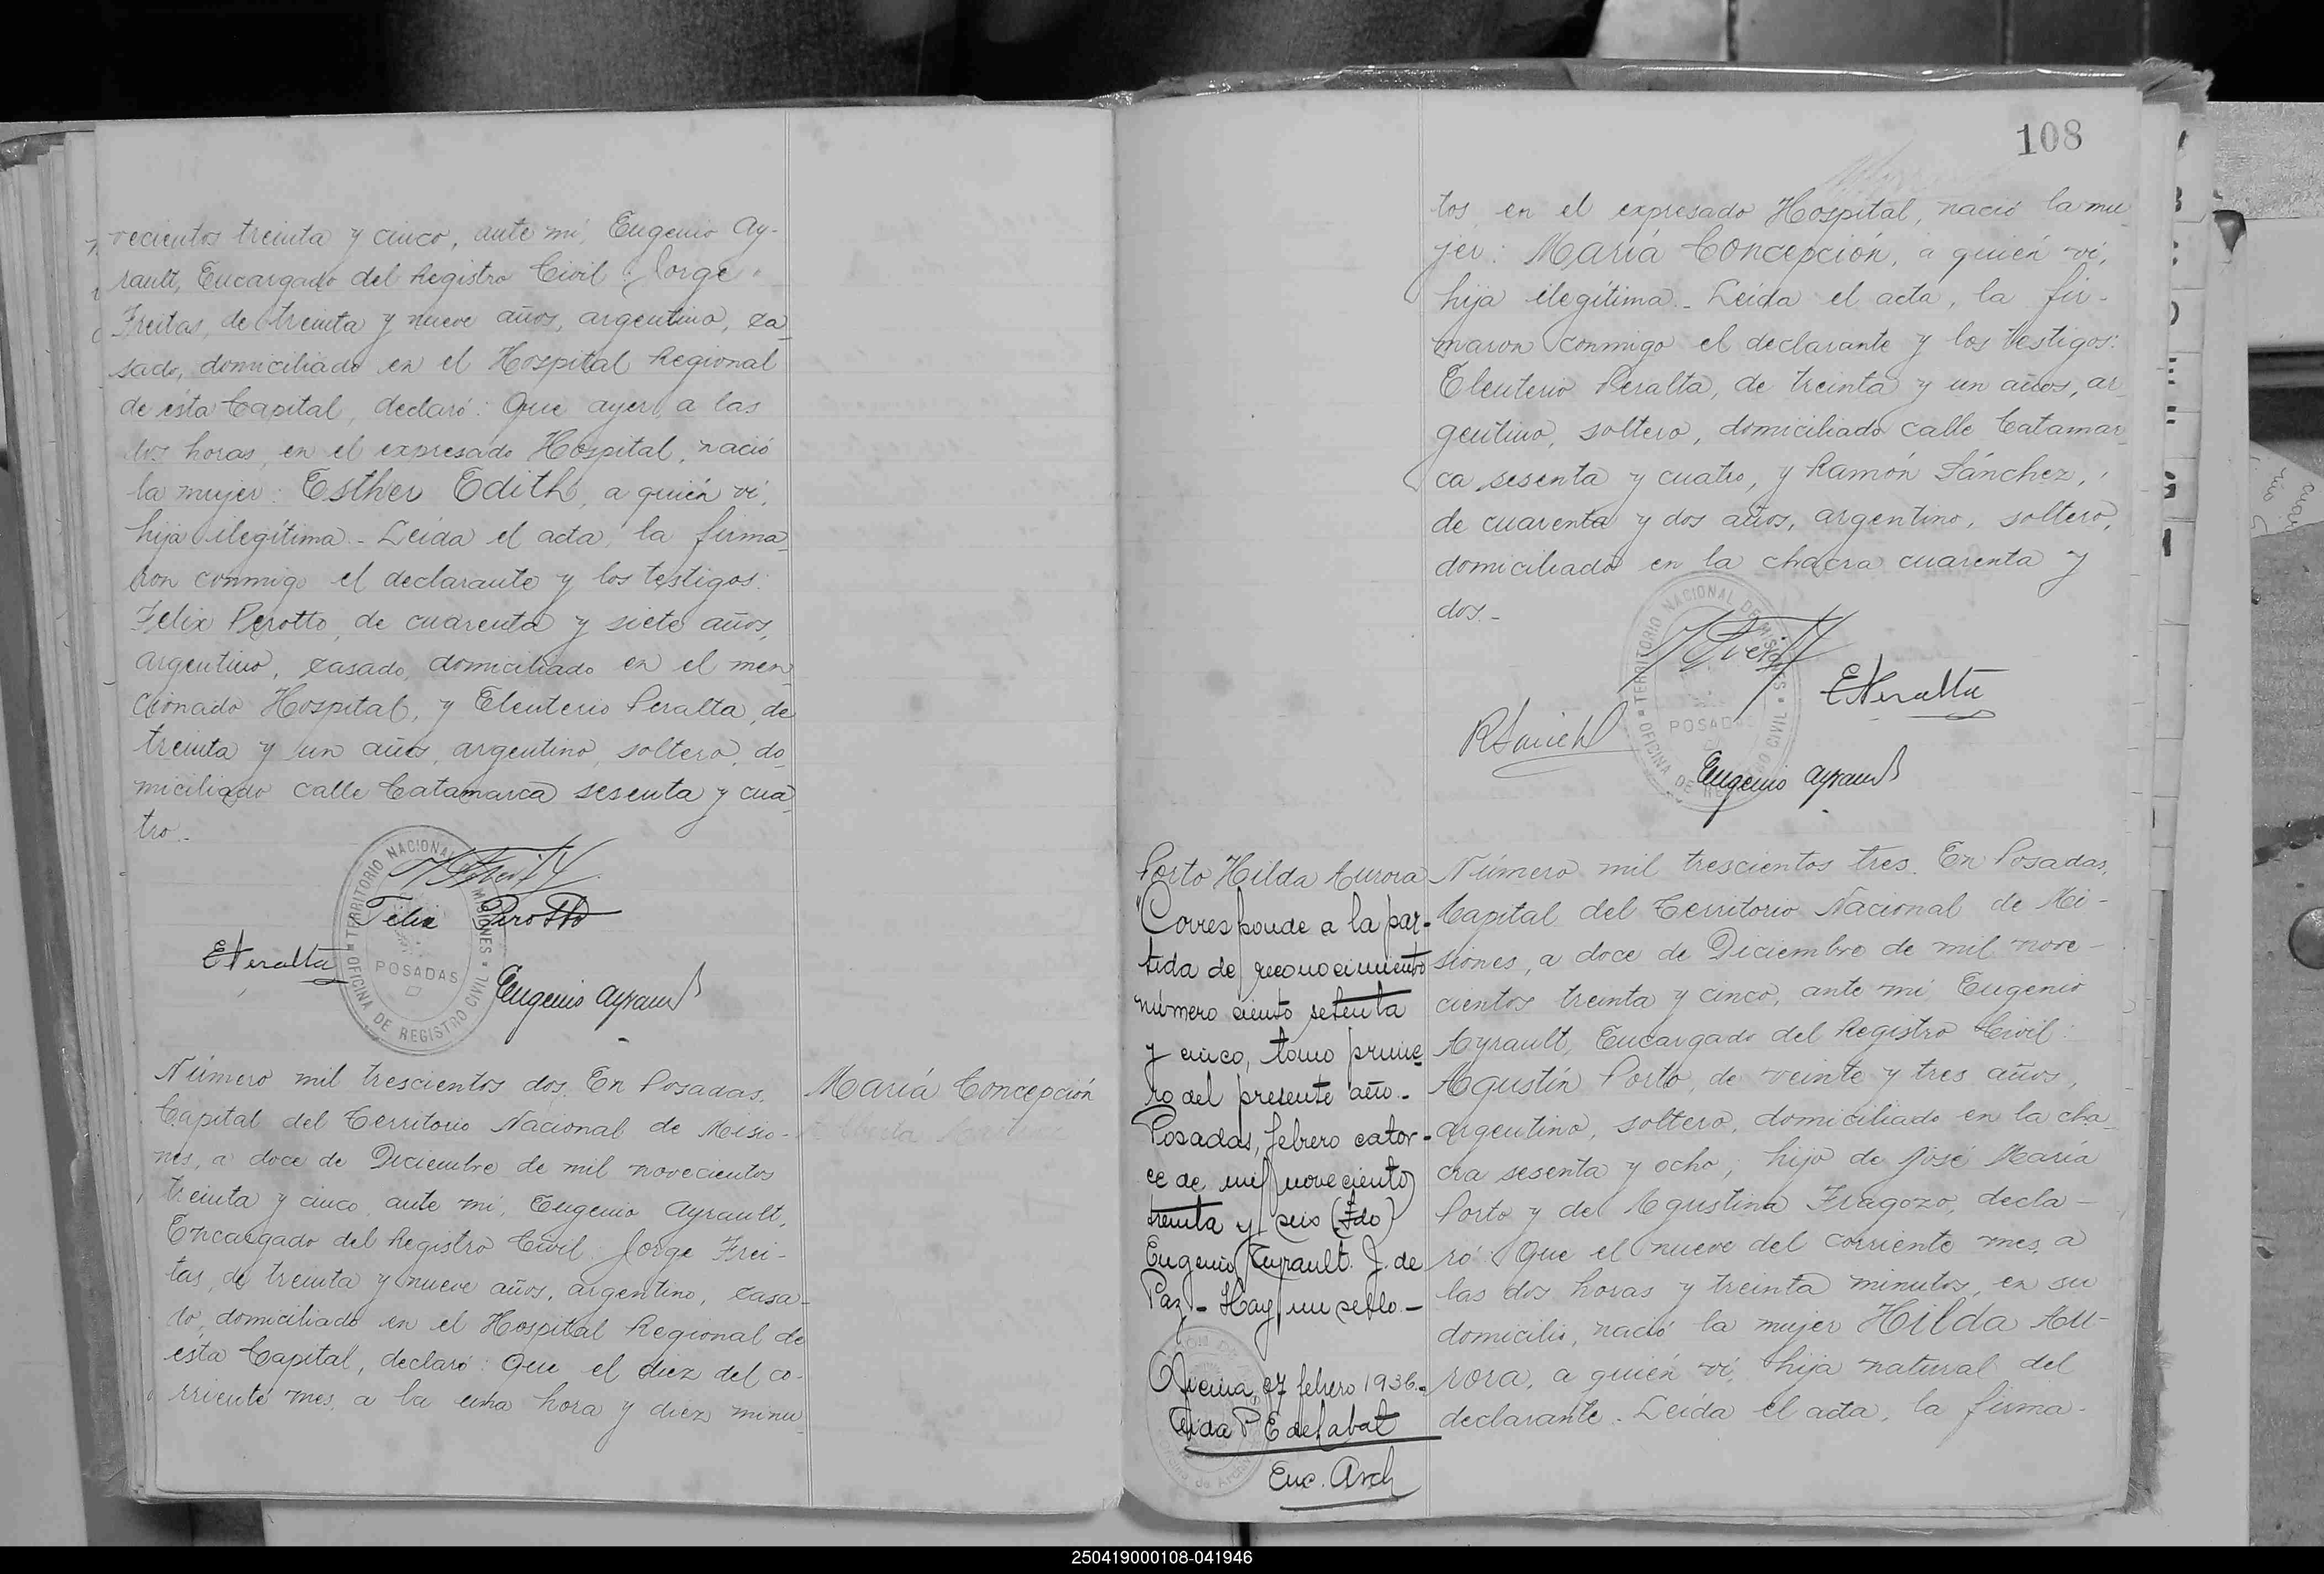 vecientos treinta y cinco, ante mí, Eugenio Ay-
rault, Encargado del Registro Civil: Jorge
Freitas, de treinta y nueve años, argentino, ca
sado, domiciliado en el Hospital Regional
de ésta Capital, declaró: Que ayer, a las
dos horas, en el expresado Hospital, nació
la mujer: Esther Edith, a quién ví,
hija ilegítima.- Leida el acta, la firma
ron conmigo el declarante y los testigos:
Felix Perotto, de cuarenta y siete años,
argentino, casado, domiciliado en el men
cionado Hospital, y Eleuterio Peralta, de
treinta y un años, argentino, soltero, do
miciliado calle Catamarca sesenta y cua
tro.-
TERRITORIO NACIONAL MISIONES
Felix Perotto
EPeralta
POSADAS
OFICINA DE REGISTRO CIVIL
Eugenio Ayrault
Número mil trescientos dos. En Posadas,
Capital del Territorio Nacional de Misio-
nes, a doce de Diciembre de mil novecientos
treinta y cinco, ante mí, Eugenio Ayrault,
Encargado del Registro Civil: Jorge Frei-
tas, de treinta y nueve años, argentino, casa-
do, domiciliado en el Hospital Regional de
ésta Capital, declaró: Que el diez del co-
rriente mes, a la una hora y diez minu
María Concepción
108
tos, en el expresado Hospital, nació la mu
jer: María Concepción, a quién ví,
hija ilegítima.- Leida el acta, la fir-
maron conmigo el declarante y los testigos:
Eleuterio Peralta, de treinta y un años, ar
gentino, soltero, domiciliado calle Catamar
ca sesenta y cuatro, y Ramón Sánchez,
de cuarenta y dos años, argentino, soltero,
domiciliado en la chacra cuarenta y
dos.-
TERRITORIO NACIONAL DE MISIONES
EPeralta
POSADAS
OFICINA DE REGISTRO CIVIL
Eugenio Ayrault
Porto Hilda Aurora
"Corresponde a la par-
tida de reconocimiento
número ciento setenta
y cinco, tomo prime
ro del presente año.-
Posadas, febrero cator-
ce de mil novecientos
treinta y seis (Fdo)
Eugenio Ayrault. J. de
Paz - Hay un sello.-
Oficina, 27 febrero 1936.-
Enc. Arch
Número mil trescientos tres. En Posadas,
Capital del Territorio Nacional de Mi-
siones, a doce de Diciembre de mil nove-
cientos treinta y cinco, ante mí, Eugenio
Ayrault, Encargado del Registro Civil:
Agustín Porto, de veinte y tres años,
argentino, soltero, domiciliado en la cha
cra sesenta y ocho, hijo de José María
Porto y de Agustina Fragozo, decla-
ró: Que el nueve del corriente mes, a
las dos horas y treinta minutos, en su
domicilio, nació la mujer Hilda Au-
rora, a quién ví, hija natural del
declarante.- Leida el acta, la firma-
250419000108-041946